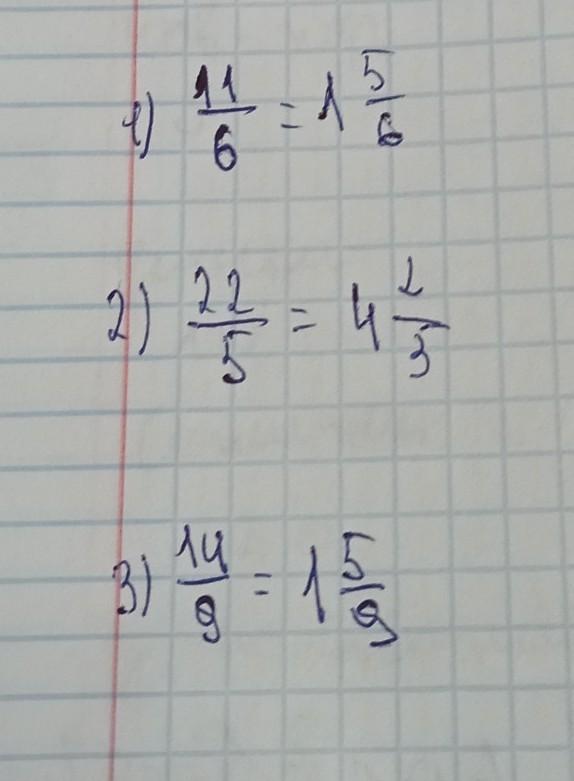 1) 11/6 = 1 5/6
2) 22/5 = 4 2/5
3) 14/9 = 1 5/9